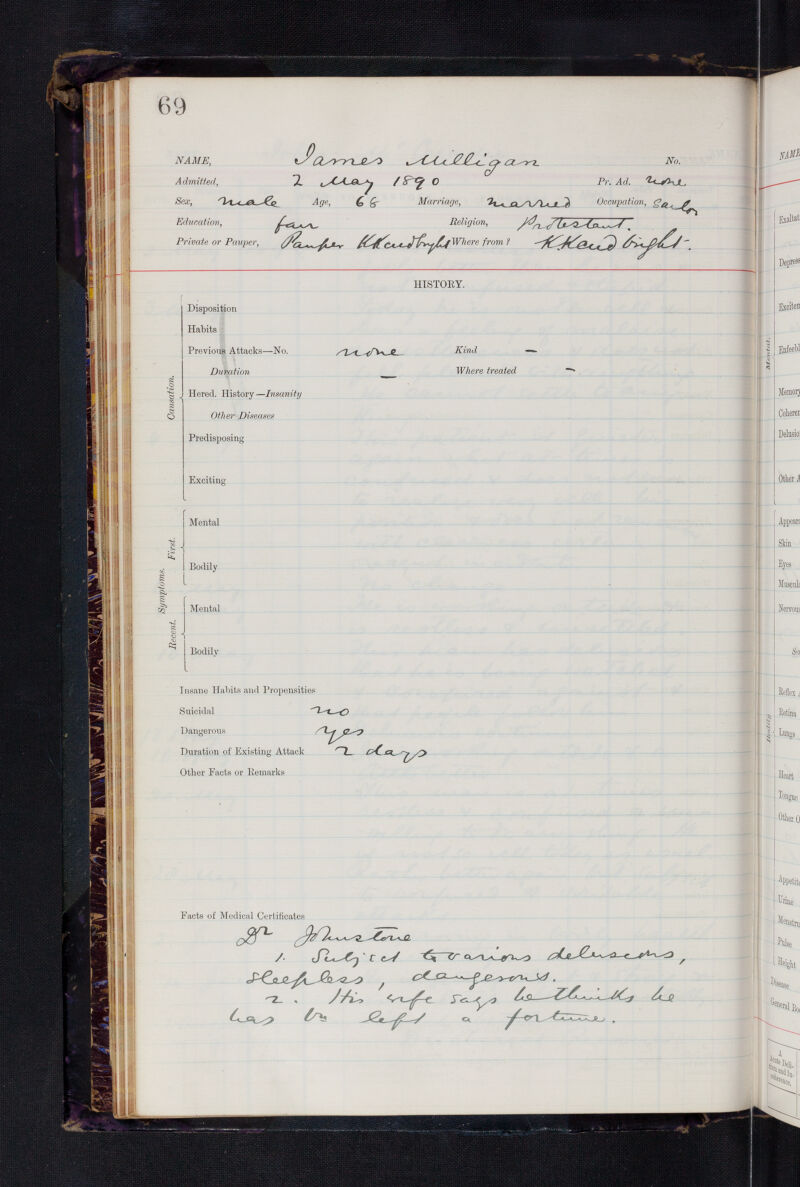 69
NAME, James Milligan No.
Admitted, 2 May 1890 Pr. Ad. none
Sex, male Age, 68 Marriage, married Occupation, Sailor
Education, fair Religion, Protestant.
Private or Pauper, Pauper KKcudbright Where from? KKcudbright.
HISTORY.
Causation.
Disposition
Habits
Previous Attacks—No. none Kind —
Duration — Where treated —
Hered. History—Insanity
Other Diseases
Predisposing
Exciting
Symptoms.
First.
Mental
Bodily
Recent.
Mental
Bodily
Insane Habits and Propensities
Suicidal no
Dangerous yes
Duration of Existing Attack 2 days
Other Facts or Remarks
Facts of Medical Certificates
Dr Johnstone
1. Subject to various delusions,
sleepless, dangerous.
2. His wife says he thinks he
has bn left a fortune.
NAME
Exaltat
Depress
Exciten
Enfeebl
Mental.
Memory
Coheren
Delusio
Other A
Appear
Skin
Eyes
Muscul
Nervou
Reflex
Retina
Lungs
Bodily
Heart
Tongue
Other O
Appetit
Urine
Menstru
Pulse
Height
Disease
General Bo